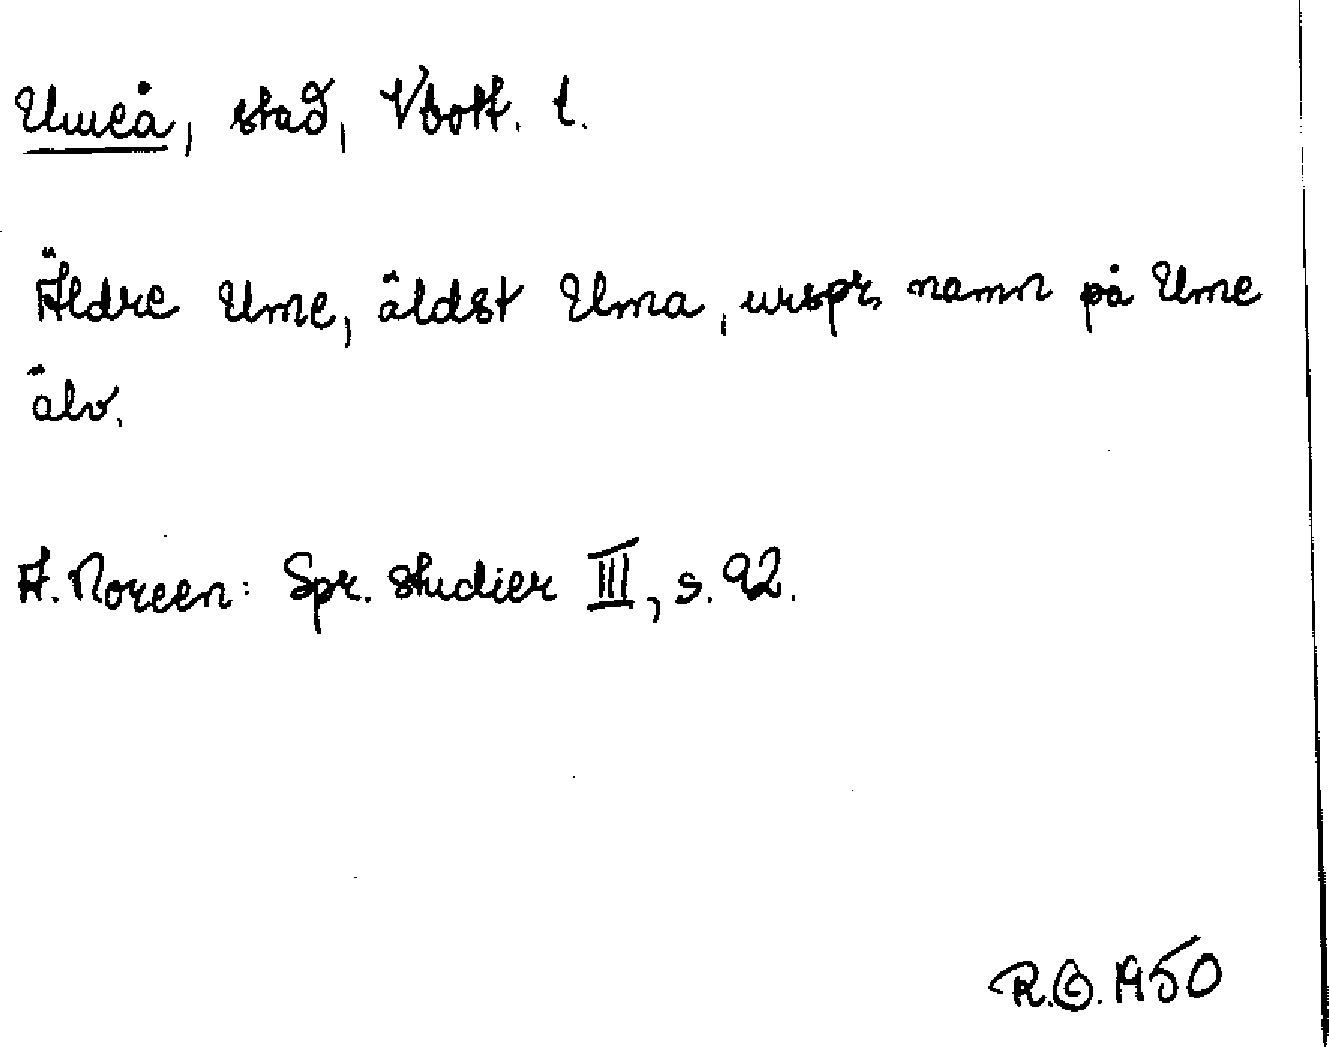 Umeå, stad, Vbott. l.
Äldre Ume, äldst Uma, urspr. namn på Ume
älv.
A. Noreen: Spr. studier III, s. 92.
R.G. 1950